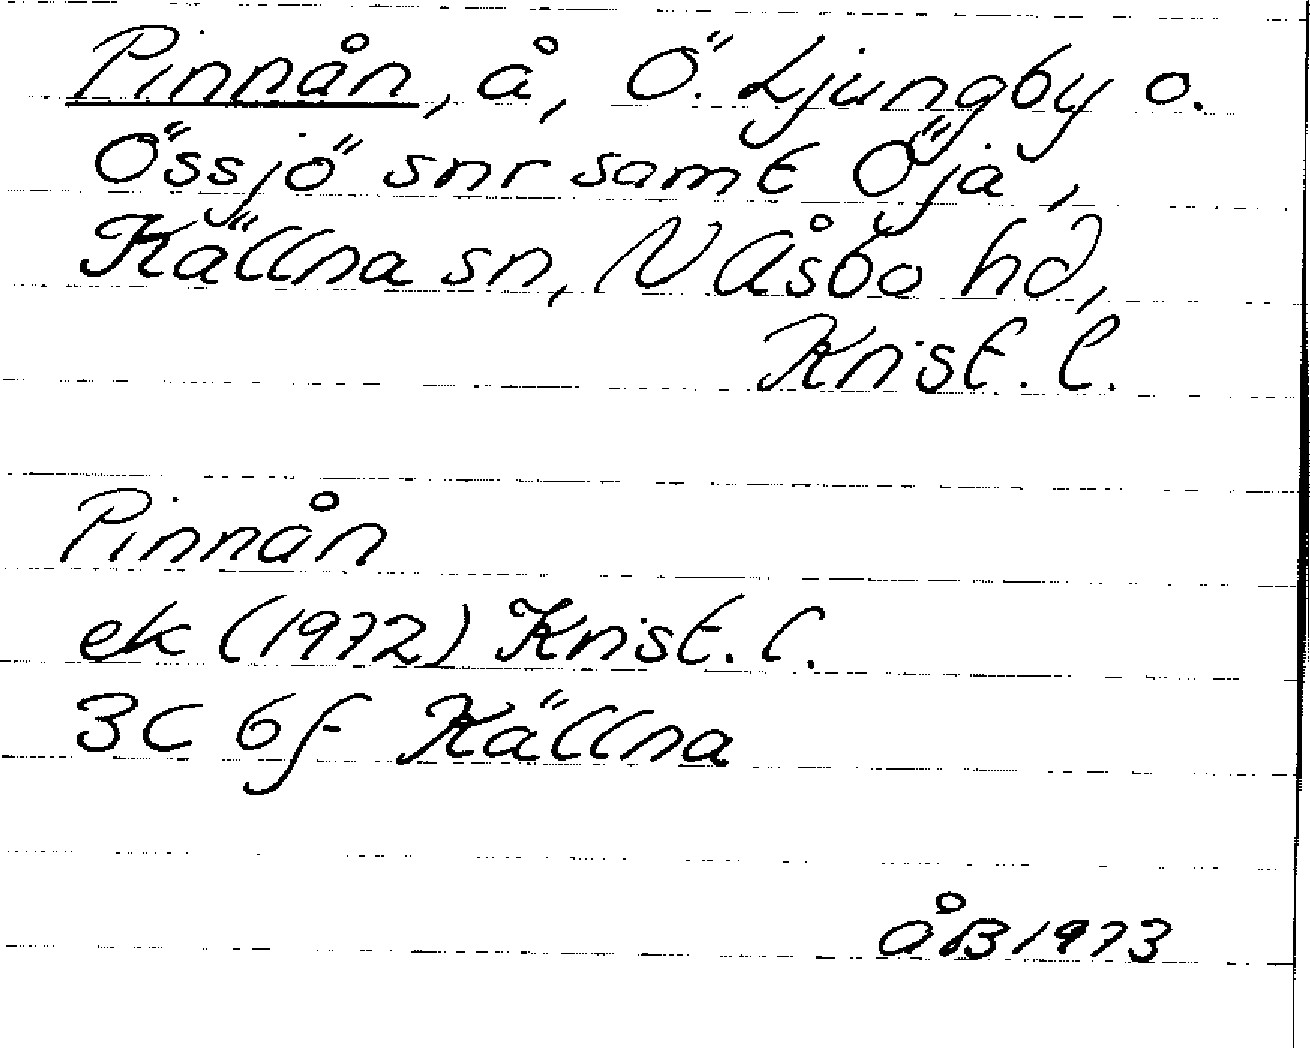 Pinnån, å, Ö. Ljungby o.
Össjö snr samt Öja,
Källna sn, N Åsbo hd,
Krist. l.
Pinnån
ek (1972) Krist. l.
3C 6f Källna
ÅB 1973